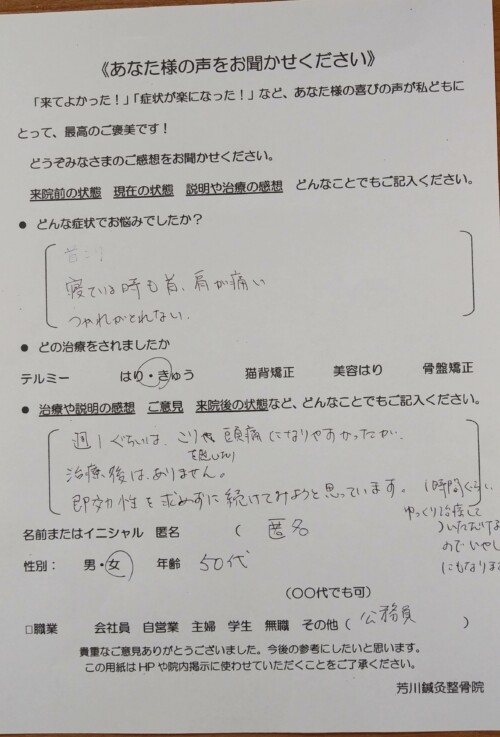 《あなた様の声をお聞かせください》
「来てよかった！」「症状が楽になった！」など、あなた様の喜びの声が私どもに
とって、最高のご褒美です！
どうぞみなさまのご感想をお聞かせください。
来院前の状態　現在の状態　説明や治療の感想　どんなことでもご記入ください。
● どんな症状でお悩みでしたか？
首こり
寝ている時も首、肩が痛い
つかれがとれない。
● どの治療をされましたか
テルミー　はり・きゅう　猫背矯正　美容はり　骨盤矯正
● 治療や説明の感想　ご意見　来院後の状態など、どんなことでもご記入ください。
週1ぐらいは、こりや頭痛になりやすかったが、
を起したり
治療後は、ありません。
即効性を求めずに続けてみようと思っています。1時間ぐらい
ゆっくり治療して
いただけるのでいやし
にもなります
名前またはイニシャル　匿名　（ 匿名 ）
性別：　男・女　年齢　50代
（〇〇代でも可）
□職業　会社員　自営業　主婦　学生　無職　その他（ 公務員 ）
貴重なご意見ありがとうございました。今後の参考にしたいと思います。
この用紙はHPや院内掲示に使わせていただくことをご了承ください。
芳川鍼灸整骨院